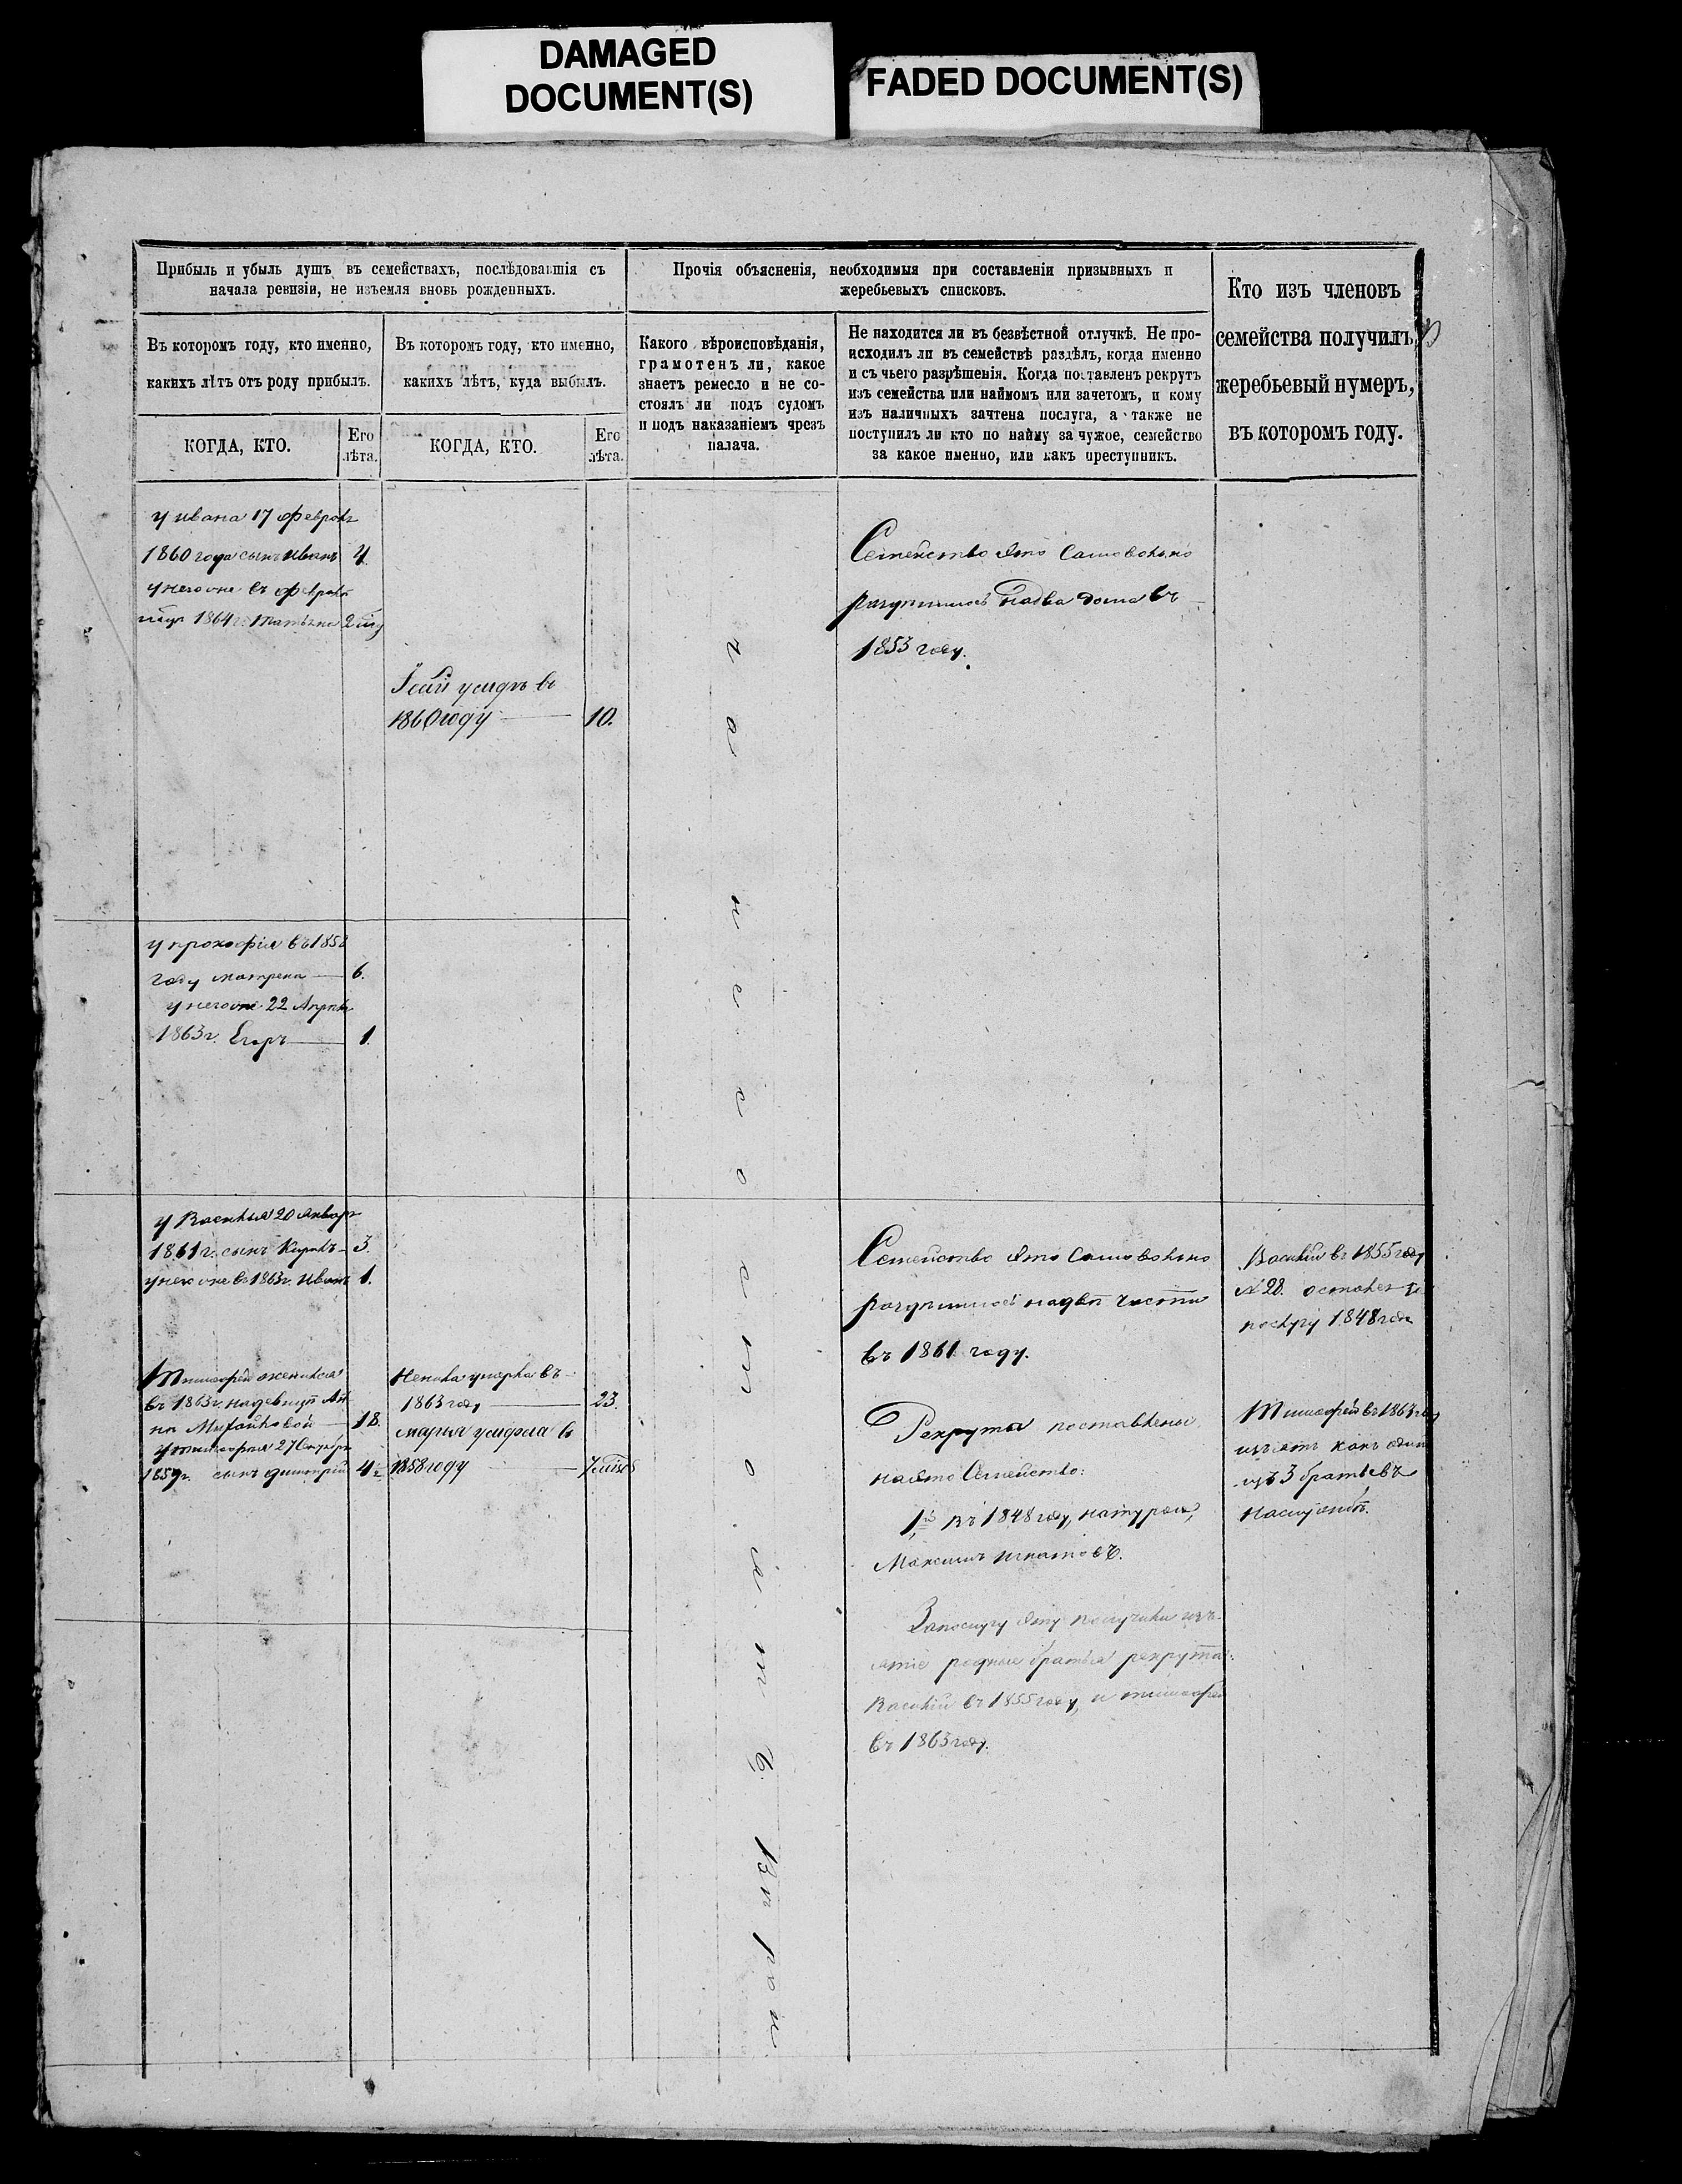 DAMAGED
DOCUMENT(S)
FADED DOCUMENT(S)
Прибыль и убыль душъ въ семействахъ, послѣдовавшія съ
начала ревизіи, не изъемля вновь рожденныхъ.
Въ которомъ году, кто именно,
какихъ лѣтъ отъ роду прибылъ.
КОГДА, КТО.
Его
лѣта.
Въ которомъ году, кто именно,
какихъ лѣтъ, куда выбылъ.
КОГДА, КТО.
Его
лѣта.
Прочія объясненія, необходимыя при составленіи призывныхъ и
жеребьевыхъ списковъ.
Какого вѣроисповѣданія,
грамотенъ ли, какое
знаетъ ремесло и не со-
стоялъ ли подъ судомъ
и подъ наказаніемъ чрезъ
палача.
Не находится ли въ безвѣстной отлучкѣ. Не про-
исходилъ ли въ семействѣ раздѣлъ, когда именно
и съ чьего разрѣшенія. Когда поставленъ рекрутъ
изъ семейства или наймомъ или зачетомъ, и кому
изъ наличныхъ зачтена послуга, а также не
поступилъ ли кто по найму за чужое, семейство
за какое именно, или какъ преступникъ.
Кто изъ членовъ
семейства получилъ
жеребьевый нумеръ,
въ которомъ году.
у ивана 17 Февраля
1860 года сынъ иванъ 4.
у него же въ Февралѣ
1864 г.
Исай умеръ въ
1860 году 10.
Семейство это самовольно
раздѣлилось на два дома въ
1853 году.
у прокофія въ 1858
году матрена 6.
у него же 22 Апрѣля
1863 г. Егоръ 1.
у Василья 20 Января
1861 г. сынъ 3.
у него же въ 1863 г. иванъ 1.
Тимофей женился
въ 1863 г. на девицѣ Ан
нѣ Михайловой 18.
у тимофея
1859 г. сынъ димитрій 4
умерла въ
1863 году 23.
марья умерла въ
1858 году
Семейство это самовольно
раздѣлилось на двѣ части
въ 1861 году.
Рекрута поставлены
на это Семейство:
1й въ 1848 году, натурою,
Максимъ игнатовъ.
За послугу эту получили изъ-
ятіе родные братья рекрута:
Василій въ 1855 году, и тимофей
въ 1863 году.
Василій въ 1855 году
№ 28. оставлен за
послугу 1848 года
Тимофей въ 1863 году
изъятъ какъ один
изъ 3 братьевъ